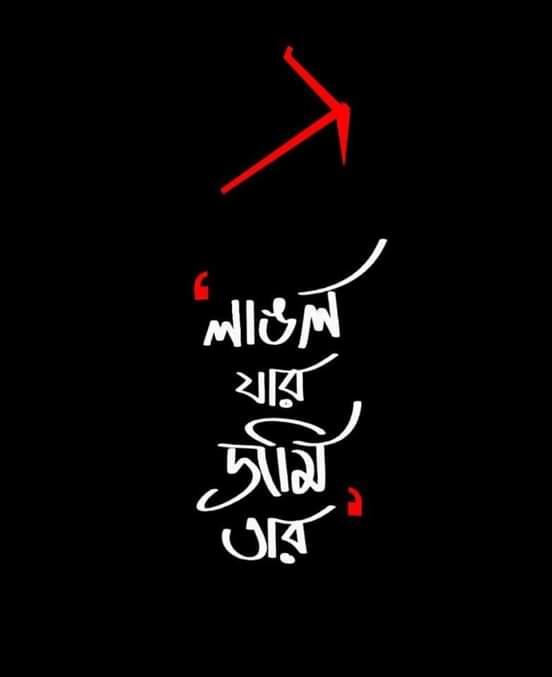 ‘লাঙল
যার
জমি
তার’